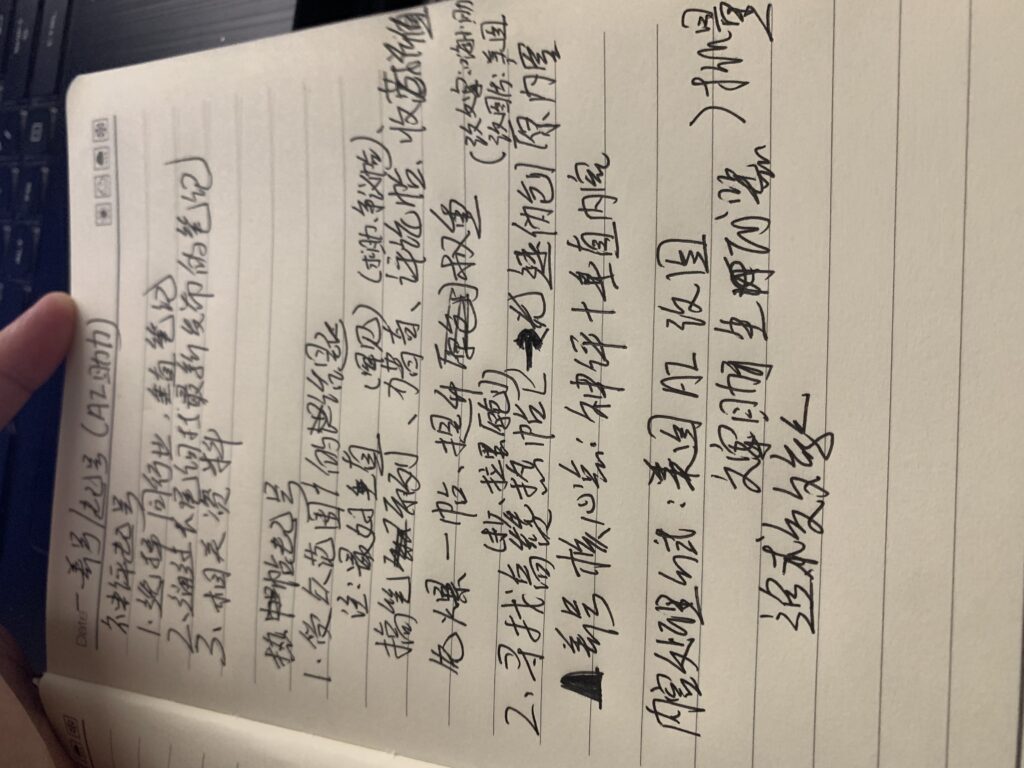 Date 一 养号/起号(AI助力)
神评起号
1. 选择同行业,垂直笔记
2. 通过长尾词找最新发布的笔记
3. 相关资料
热帖起号
1. 受众范围广的话题
注:最好垂直 (罕见) (求助、争议帖)、
搞笑系列、猎奇、评论帖、收藏价值
先爆一帖、提升原创权重
(改文案: 
改图片:美图
2. 寻找高赞热帖 → 伪创 原内容
养号核心点:神评+垂直内容
内容处理方式:美图AI改图
文案 生成器 )批量
追求